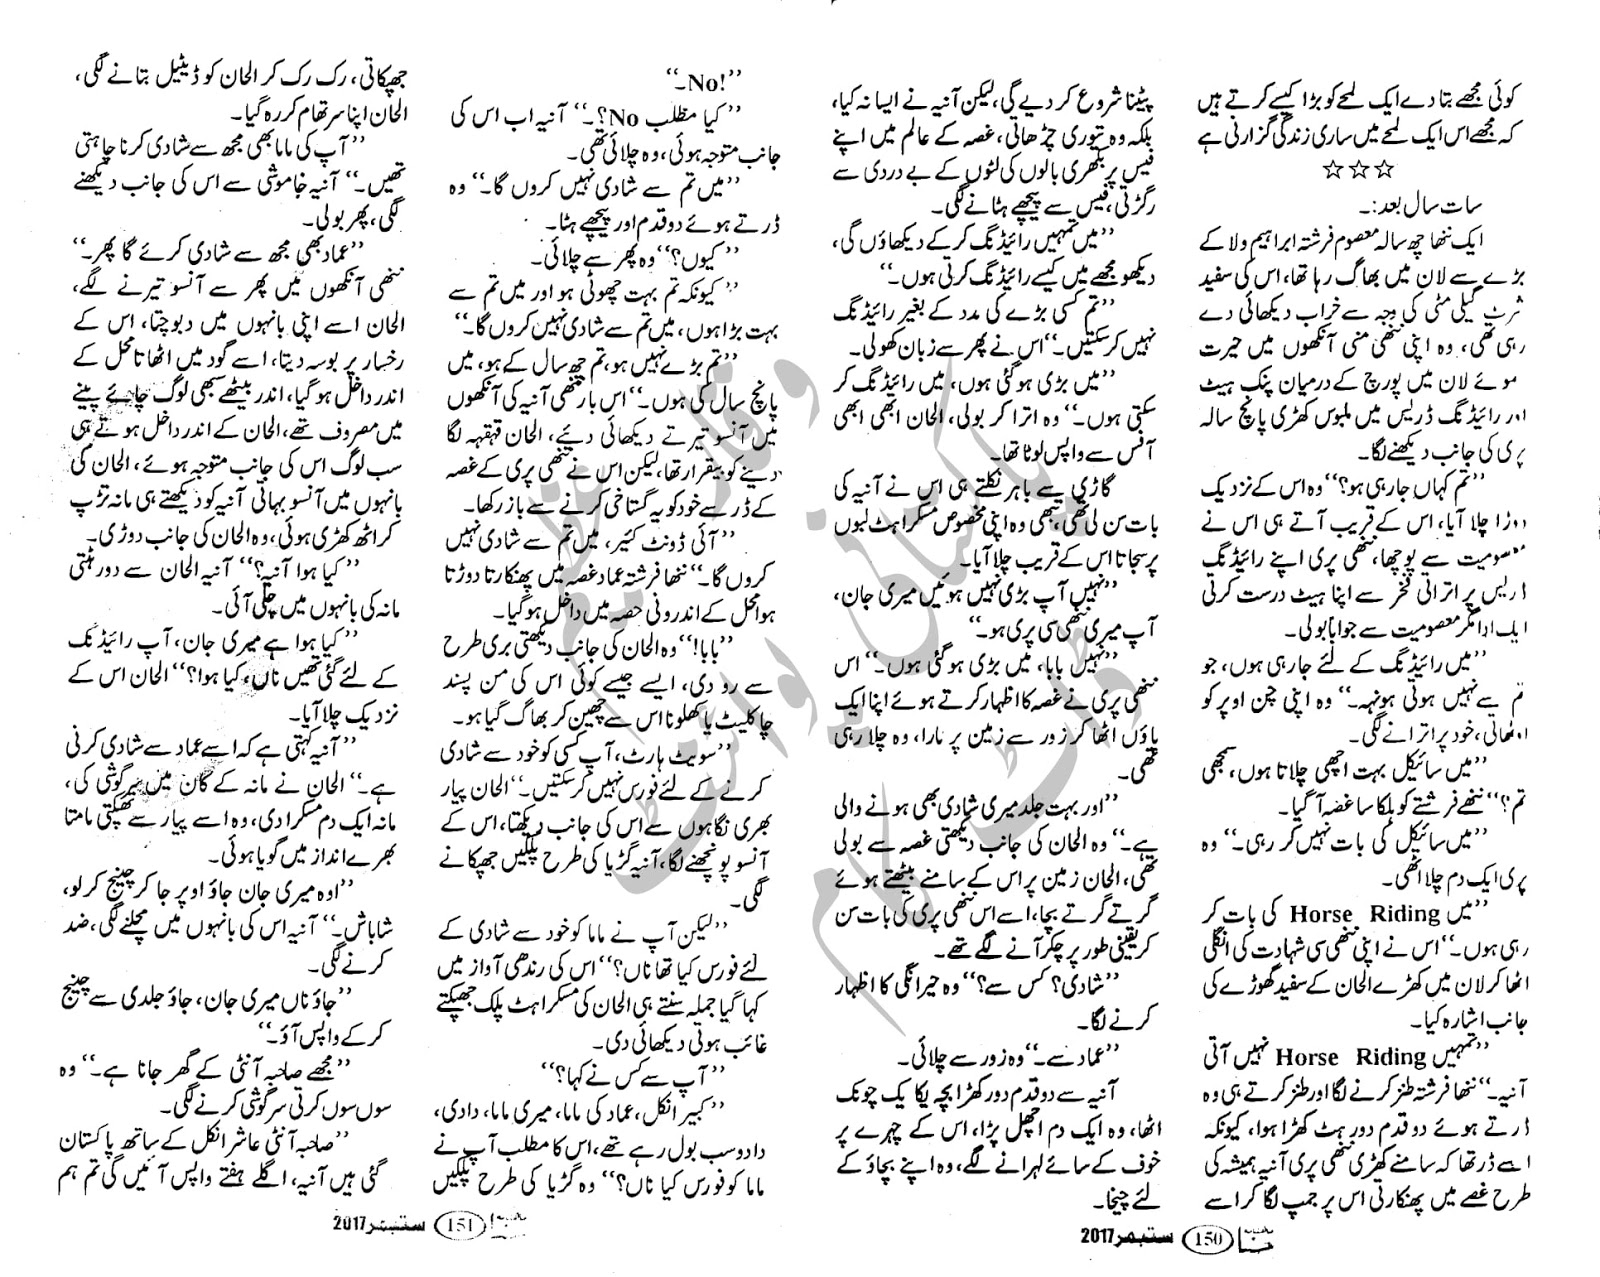 کوئی مجھے بتا دے ایک لمحے کو بڑا کیسے کرتے ہیں
کہ مجھے اس ایک لمحے میں ساری زندگی گزارنی ہے
☆☆☆
سات سال بعد:۔
ایک ننھا چھ سالہ معصوم فرشتہ ابراہیم ولا کے
بڑے سے لان میں بھاگ رہا تھا، اس کی سفید
شرٹ گیلی مٹی کی وجہ سے خراب دیکھائی دے
رہی تھی، وہ اپنی ننھی منی آنکھوں میں حیرت
موئے لان میں پورچ کے درمیان پنک ہیٹ
اور رائیڈنگ ڈریس میں ملبوس کھڑی پانچ سالہ
پری کی جانب دیکھنے لگا۔
’’تم کہاں جا رہی ہو؟‘‘ وہ اس کے نزدیک
دوڑا چلا آیا، اس کے قریب آتے ہی اس نے
معصومیت سے پوچھا، ننھی پری اپنے رائیڈنگ
ڈریس پر اتراتی فخر سے اپنا ہیٹ درست کرتی
ایک ادا مگر معصومیت سے جواباً بولی۔
’’میں رائیڈنگ کے لئے جا رہی ہوں، جو
تم سے نہیں ہوتی ہونہہ۔‘‘ وہ اپنی چن اوپر کو
اٹھاتی، خود پر اترانے لگی۔
’’میں سائیکل بہت اچھی چلاتا ہوں، سمجھی
تم؟‘‘ ننھے فرشتے کو ہلکا سا غصہ آ گیا۔
’’میں سائیکل کی بات نہیں کر رہی۔‘‘ وہ
پری ایک دم چلا اٹھی۔
’’میں Horse Riding کی بات کر
رہی ہوں۔‘‘ اس نے اپنی ننھی سی شہادت کی انگلی
اٹھا کر لان میں کھڑے الحان کے سفید گھوڑے کی
جانب اشارہ کیا۔
’’تمہیں Horse Riding نہیں آتی
آنیہ۔‘‘ ننھا فرشتہ طنز کرنے لگا اور طنز کرتے ہی وہ
ڈرتے ہوئے دو قدم دور ہٹ کھڑا ہوا، کیونکہ
اسے ڈر تھا کہ سامنے کھڑی ننھی پری آنیہ ہمیشہ کی
طرح غصے میں پھنکارتی اس پر جمپ لگا کر اسے
پیٹنا شروع کر دیے گی، لیکن آنیہ نے ایسا نہ کیا،
بلکہ وہ تیوری چڑھاتی، غصہ کے عالم میں اپنے
فیس پر بکھری بالوں کی لٹوں کے بے دردی سے
رگڑتی، فیس سے پیچھے ہٹانے لگی۔
’’میں تمہیں رائیڈنگ کر کے دیکھاؤں گی،
دیکھو مجھے میں کیسے رائیڈنگ کرتی ہوں۔‘‘
’’تم کسی بڑے کی مدد کے بغیر رائیڈنگ
نہیں کر سکتیں۔‘‘ اس نے پھر سے زبان کھولی۔
’’میں بڑی ہو گئی ہوں، میں رائیڈنگ کر
سکتی ہوں۔‘‘ وہ اترا کر بولی، الحان ابھی ابھی
آفس سے واپس لوٹا تھا۔
گاڑی سے باہر نکلتے ہی اس نے آنیہ کی
بات سن لی تھی، تبھی وہ اپنی مخصوص مسکراہٹ لبوں
پر سجاتا اس کے قریب چلا آیا۔
’’نہیں آپ بڑی نہیں ہوئیں میری جان،
آپ میری ننھی سی پری ہو۔‘‘
’’نہیں بابا، میں بڑی ہو گئی ہوں۔‘‘ اس
ننھی پری نے غصہ کا اظہار کرتے ہوئے اپنا ایک
پاؤں اٹھا کر زور سے زمین پر مارا، وہ چلا رہی
تھی۔
’’اور بہت جلد میری شادی بھی ہونے والی
ہے۔‘‘ وہ الحان کی جانب دیکھتی غصہ سے بولی
تھی، الحان زمین پر اس کے سامنے بیٹھتے ہوئے
گرتے گرتے بچا، اسے اس ننھی پری کی بات سن
کر یقینی طور پر چکر آنے لگے تھے۔
’’شادی؟ کس سے؟‘‘ وہ حیرانگی کا اظہار
کرنے لگا۔
’’عماد سے۔‘‘ وہ زور سے چلائی۔
آنیہ سے دو قدم دور کھڑا بچہ یکا یک چونک
اٹھا، وہ ایک دم اچھل پڑا، اس کے چہرے پر
خوف کے سائے لہرانے لگے، وہ اپنے بچاؤ کے
لئے چیخا۔
ماہنامہ حنا 150 ستمبر 2017
’’No!۔‘‘
’’کیا مطلب No؟۔‘‘ آنیہ اب اس کی
جانب متوجہ ہوئی، وہ چلائی تھی۔
’’میں تم سے شادی نہیں کروں گا۔‘‘ وہ
ڈرتے ہوئے دو قدم اور پیچھے ہٹا۔
’’کیوں؟‘‘ وہ پھر سے چلائی۔
’’کیونکہ تم بہت چھوٹی ہو اور میں تم سے
بہت بڑا ہوں، میں تم سے شادی نہیں کروں گا۔‘‘
’’تم بڑے نہیں ہو، تم چھ سال کے ہو، میں
پانچ سال کی ہوں۔‘‘ اس بار ننھی آنیہ کی آنکھوں
میں آنسو تیرتے دیکھائی دیئے، الحان قہقہہ لگا
دینے کو بیقرار تھا، لیکن اس نے ننھی پری کے غصہ
کے ڈر سے خود کو یہ گستاخی کرنے سے باز رکھا۔
’’آئی ڈونٹ کئیر، میں تم سے شادی نہیں
کروں گا۔‘‘ ننھا فرشتہ عماد غصہ میں پھنکارتا دوڑتا
ہوا محل کے اندرونی حصہ میں داخل ہو گیا۔
’’بابا!‘‘ وہ الحان کی جانب دیکھتی بری طرح
سے رو دی، ایسے جیسے کوئی اس کی من پسند
چاکلیٹ یا کھلونا اس سے چھین کر بھاگ گیا ہو۔
’’سویٹ ہارٹ، آپ کسی کو خود سے شادی
کرنے کے لئے فورس نہیں کر سکتیں۔‘‘ الحان پیار
بھری نگاہوں سے اس کی جانب دیکھتا، اس کے
آنسو پونچھنے لگا، آنیہ گڑیا کی طرح پلکیں جھپکانے
لگی۔
’’لیکن آپ نے ماما کو خود سے شادی کے
لئے فورس کیا تھا ناں؟‘‘ اس کی رندھی آواز میں
کہا گیا جملہ سنتے ہی الحان کی مسکراہٹ پلک جھپکتے
غائب ہوتی دیکھائی دی۔
’’آپ سے کس نے کہا؟‘‘
’’کبیر انکل، عماد کی ماما، میری ماما، دادی،
دادو سب بول رہے تھے، اس کا مطلب آپ نے
ماما کو فورس کیا ناں؟‘‘ وہ گڑیا کی طرح پلکیں
جھپکاتی، رک رک کر الحان کو ڈیٹیل بتانے لگی،
الحان اپنا سر تھام کر رہ گیا۔
’’آپ کی ماما بھی مجھ سے شادی کرنا چاہتی
تھیں۔‘‘ آنیہ خاموشی سے اس کی جانب دیکھنے
لگی، پھر بولی۔
’’عماد بھی مجھ سے شادی کرے گا پھر۔‘‘
ننھی آنکھوں میں پھر سے آنسو تیرنے لگے،
الحان اسے اپنی بانہوں میں دبوچتا، اس کے
رخسار پر بوسہ دیتا، اسے گود میں اٹھاتا محل کے
اندر داخل ہو گیا، اندر بیٹھے سبھی لوگ چائے پینے
میں مصروف تھے، الحان کے اندر داخل ہوتے ہی
سب لوگ اس کی جانب متوجہ ہوئے، الحان کی
بانہوں میں آنسو بہاتی آنیہ کو دیکھتے ہی مانہ تڑپ
کر اٹھ کھڑی ہوئی، وہ الحان کی جانب دوڑی۔
’’کیا ہوا آنیہ؟‘‘ آنیہ الحان سے دور ہٹتی
مانہ کی بانہوں میں چلی آئی۔
’’کیا ہوا ہے میری جان، آپ رائیڈنگ
کے لئے گئی تھیں ناں، کیا ہوا؟‘‘ الحان اس کے
نزدیک چلا آیا۔
’’آنیہ کہتی ہے کہ اسے عماد سے شادی کرنی
ہے۔‘‘ الحان نے مانہ کے کان میں سرگوشی کی،
مانہ ایک دم مسکرا دی، وہ اسے پیار سے تھپکتی مامتا
بھرے انداز میں گویا ہوئی۔
’’اوہ میری جان جاؤ اوپر جا کر چینج کر لو،
شاباش۔‘‘ آنیہ اس کی بانہوں میں مچلنے لگی، ضد
کرنے لگی۔
’’جاؤ ناں میری جان، جاؤ جلدی سے چینج
کر کے واپس آؤ۔‘‘
’’مجھے صاحبہ آنٹی کے گھر جانا ہے۔‘‘ وہ
سوں سوں کرتی سرگوشی کرنے لگی۔
’’صاحبہ آنٹی عاشر انکل کے ساتھ پاکستان
گئی ہیں آنیہ، اگلے ہفتے واپس آئیں گی تم ہم
ماہنامہ حنا 151 ستمبر 2017
پاکستانی پوائنٹ
ڈاٹ کام